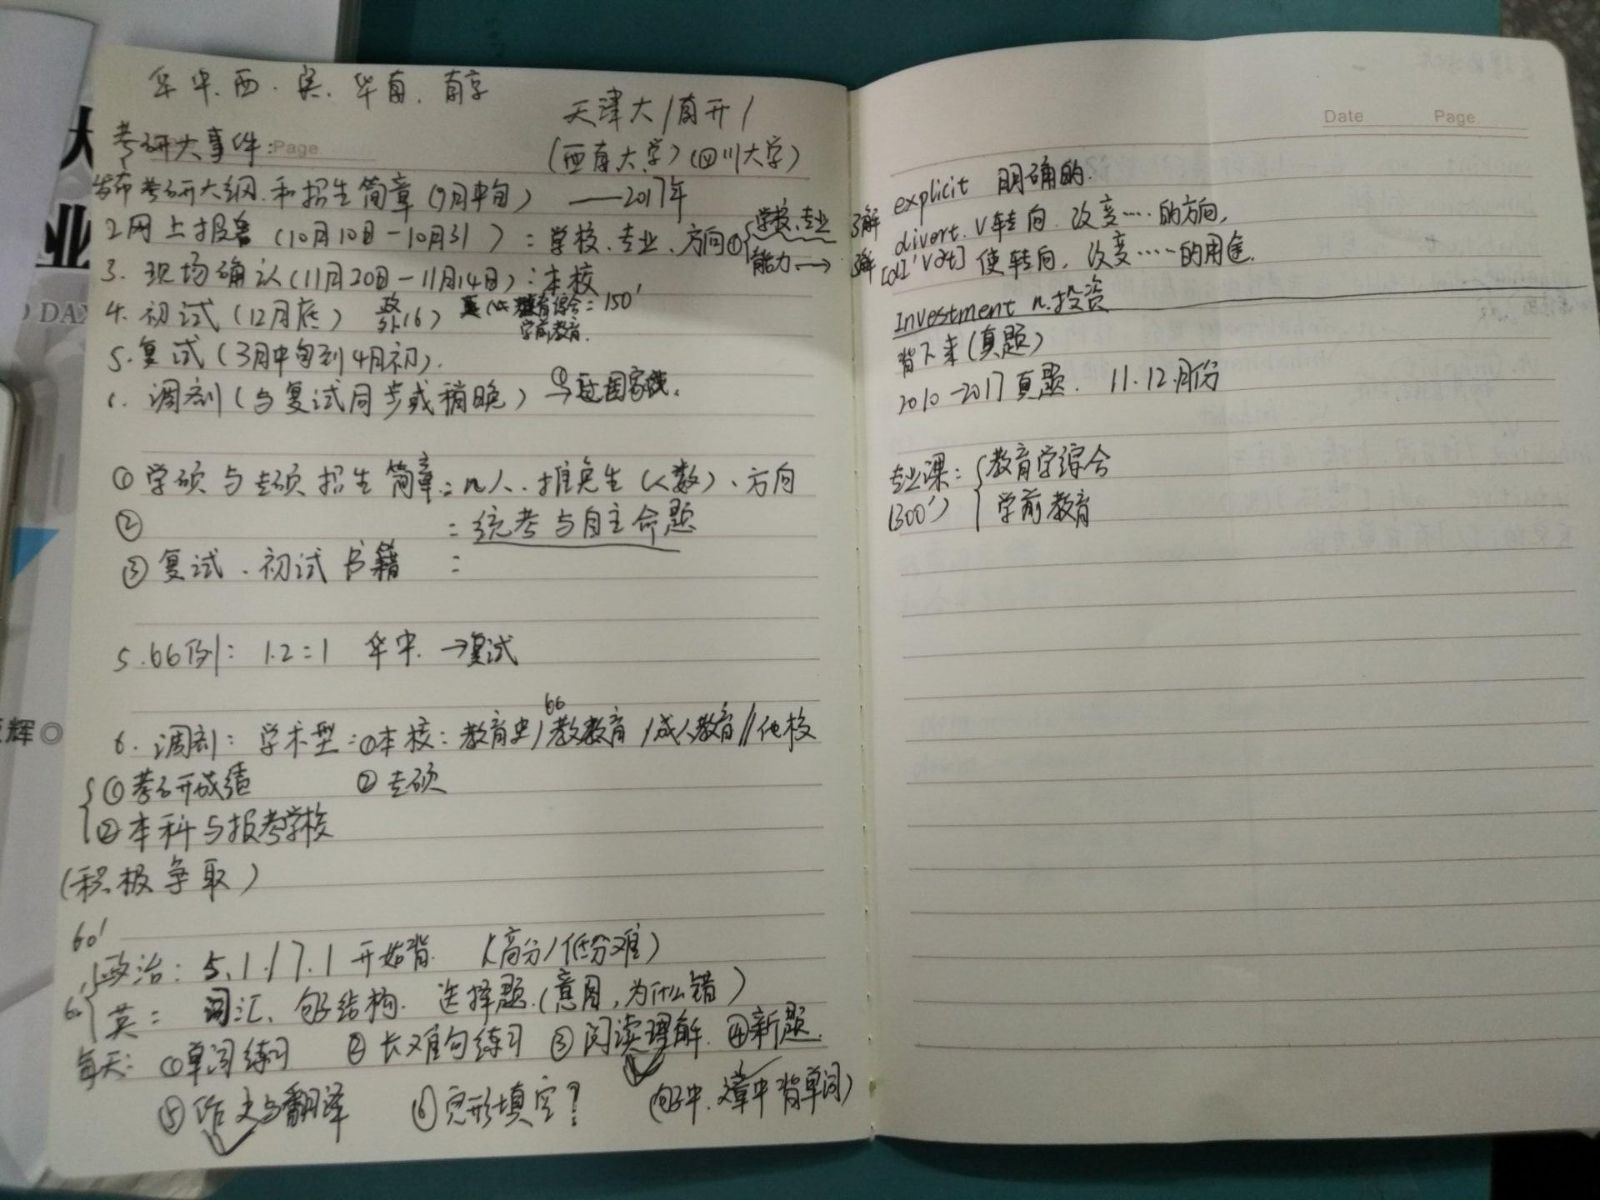 华中.西.宾.华南.南京
天津大/南开/
考研大事件: Page
(西南大学)(四川大学)
发布考研大纲.和招生简章(9月中旬) ——2017年
2.网上报名(10月10日-10月31):学校、专业、方向①{学校、专业 了解
能力→ 了解
3.现场确认(11月20日-11月14日):本校
4.初试(12月底)
教育综合=150'
学前教育.
5.复试(3月中旬到4月初).
调剂(与复试同步或稍晚) ①→过国家线.
①学硕与专硕招生简章:n人、推免生(人数)、方向
② :统考与自主命题
③复试.初试书籍 :
5.66例: 1.2:1 华中.→复试
66
6.调剂: 学术型:①本校:教育史/教教育/成人教育//他校
①考研成绩 ②专硕
②本科与报考学校
(积极争取)
60'
政治: 5.1./7.1开始背 (高分/低分难)
60 英: 词汇、句子结构.选择题.(意图,为什么错)
每天: ①单词练习 ②长难句练习 ③阅读理解.④新题.
⑤作文与翻译 ⑥完形填空? (句子中.文章中背单词)
Date Page
explicit 明确的.
divert.V转向.改变....的方向,
使转向,改变....的用途.
Investment n.投资
背下来(真题)
2010-2017真题. 11.12月份
专业课:{教育学综合
(300') 学前教育
辉